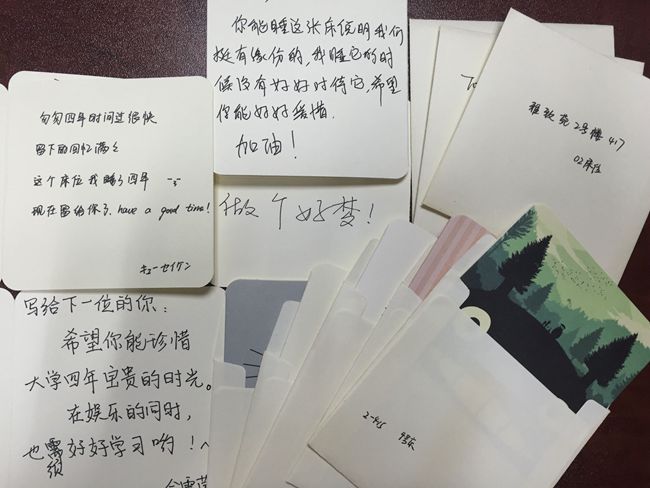 匆匆四年时间过得快
留下的回忆满满
这个床位我睡了四年
现在留给你了. have a good time!
キューセイケン
你能睡这张床说明我们
挺有缘份的,我睡它的时
候没有好好对待它,希望
你能好好爱惜.
加油!
做个好梦!
写给下一位的你:
希望你能珍惜
大学四年宝贵的时光。
在娱乐的同时,
也需好好学习哟!^
须
2号楼 417
02床位
2-415